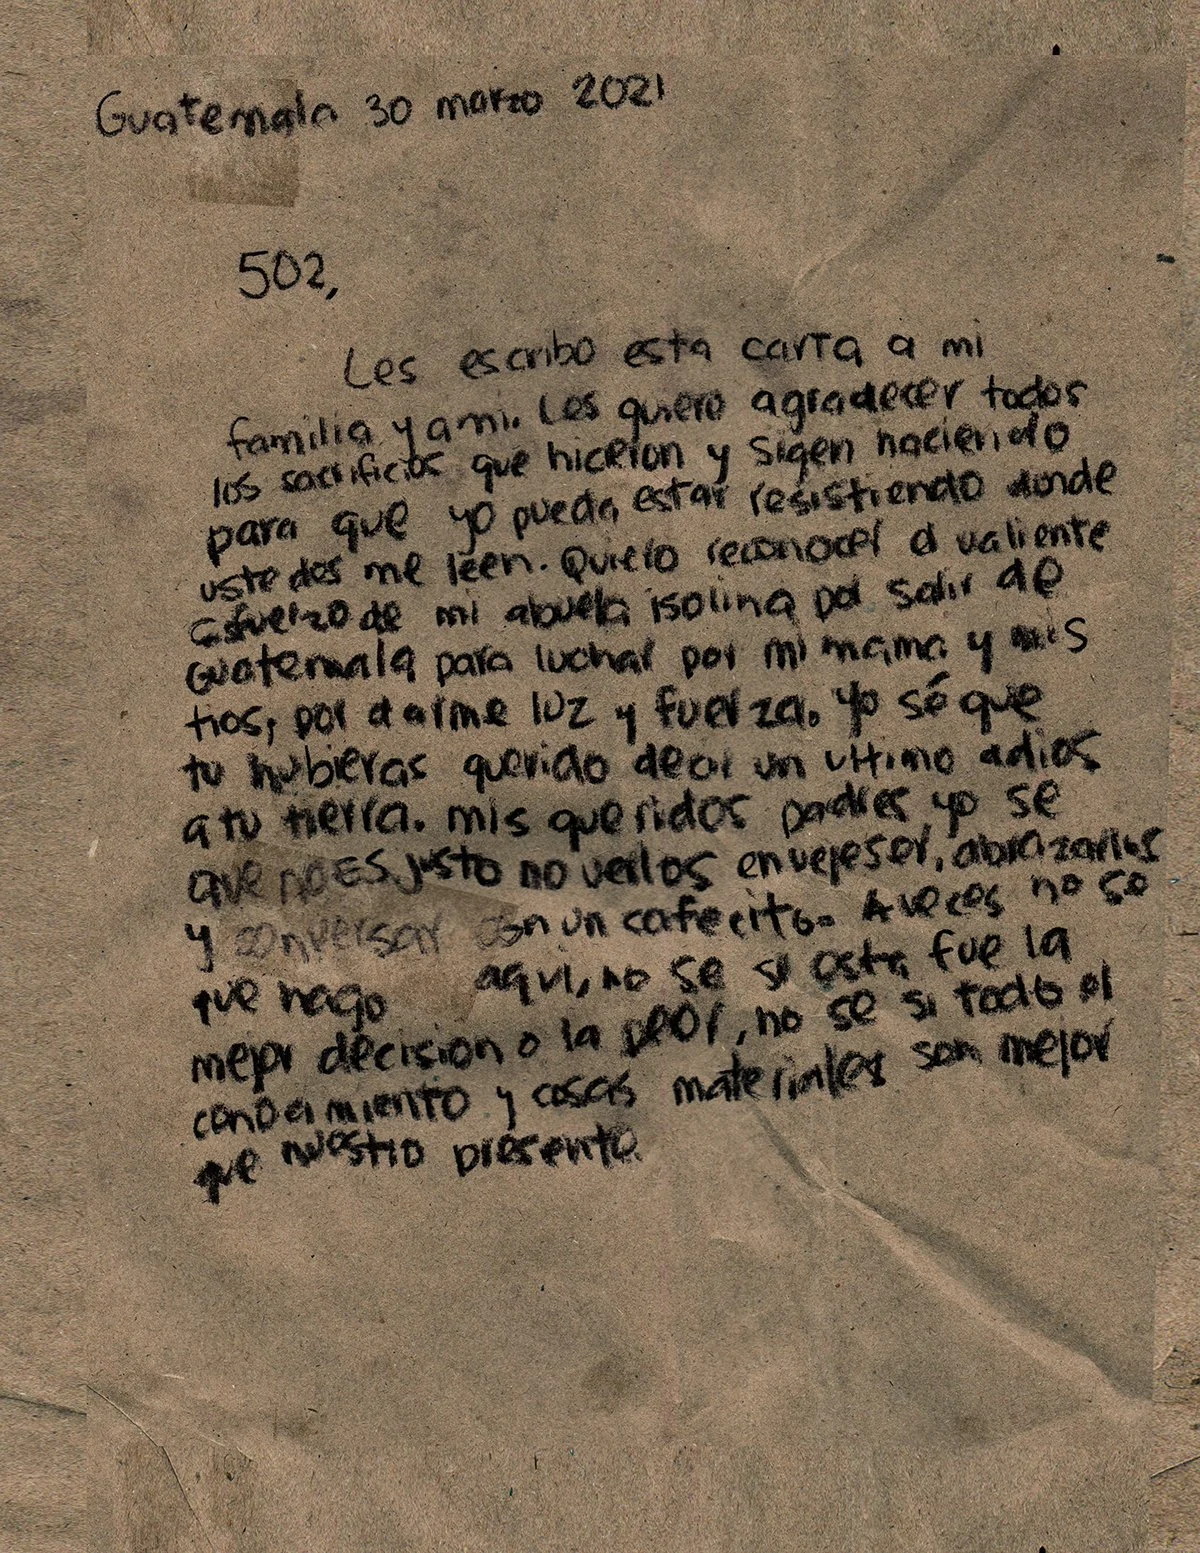 Guatemala 30 marzo 2021
502,
Les escribo esta carta a mi
familia y a mi. Les quiero agradecer todos
los sacrificios que hiceron y sigen haciendo
para que yo pueda estar resistiendo donde
ustedes me leen. Quiero reconocer el valiente
esfuerzo de mi abuela isolina por salir de
Guatemala para luchar por mi mama y mis
tios, por darme luz y fuerza. Yo sé que
tu hubieras querido decir un ultimo adios
a tu tierra. Mis queridos padres yo se
que no ES justo no verlos envejeser, abrazarlos
y conversar con un cafecito. Aveces no se
que hago aqui, no se si esta fue la
mejor decision o la peor, no se si todo el
conocimiento y cosas materiales son mejor
que nuestro presente.